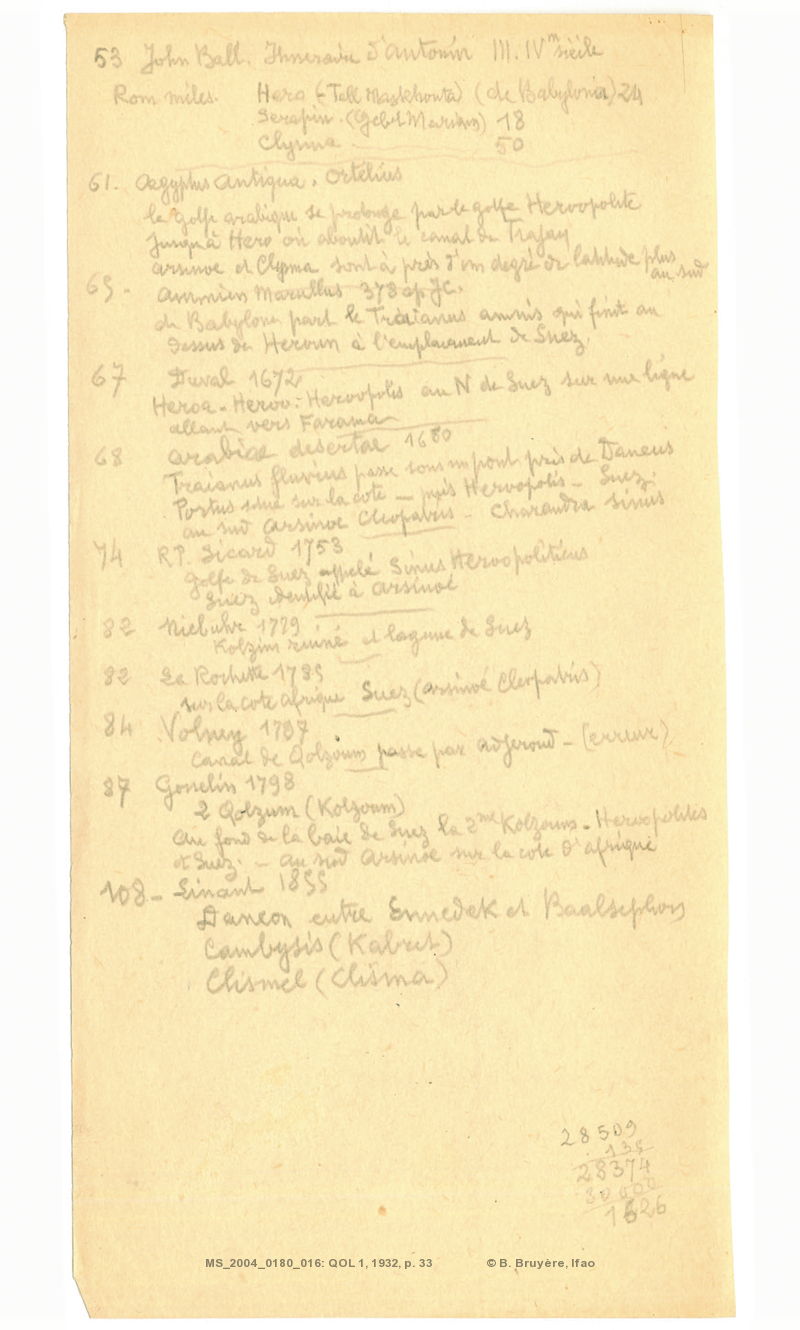 53 John Ball. Itineraire d'Antonin III. IVm siècle
Rom miles. Hero (-Tell Maskhouta) (de Babylonia) 24
Serapiu. (Gebel Mariam) 18
Clysma 50
61. Aegyptus Antiqua. Ortelius
le golfe arabique se prolonge par le golfe Heroopolite
jusqu'à Hero où aboutit le canal de Trajan
Arsinoe et Clysma sont à près d'un degré de latitude plus au sud
65 - Ammien Marcellus 378 ap JC.
de Babylone part le Traianus amnis qui finit au
dessus de Heroun à l'emplacement de Suez.
67 Duval 1672
Heroa - Heroo: Heroopolis au N de Suez sur une ligne
allant vers Farama
68 Arabiae desertae 1680
Traianus fluvius passe sous un pont près de Daneus
Portus situé sur la cote — près Heroopolis - Suez.
au sud Arsinoe Cleopatris - Charandra sinus
74 R.P. Sicard 1753
golfe de Suez appelé Sinus Heroopoliticus
Suez identifié à Arsinoé
82 Niebuhr 1779
Kolzim ruiné et lagune de Suez
82 La Rochette 1785
sur la cote afrique Suez (Arsinoé Cleopatris)
84 Volney 1787
Canal de Qolzoum passe par Adjeroud - (erreur)
87 Gosselin 1798
2 Qolzum (Kolzoum)
Au fond de la baie de Suez la 2me Kolzoum - Heroopolites
et Suez. - Au sud Arsinoe sur la cote d'afrique
108 - Linant 1855
Daneon entre Ennedek et Baalsephon
Cambysis (Kabret)
Clismel (Clisma)
28509
135
28374
30000
1626
MS_2004_0180_016: QOL 1, 1932, p. 33 © B. Bruyère, Ifao